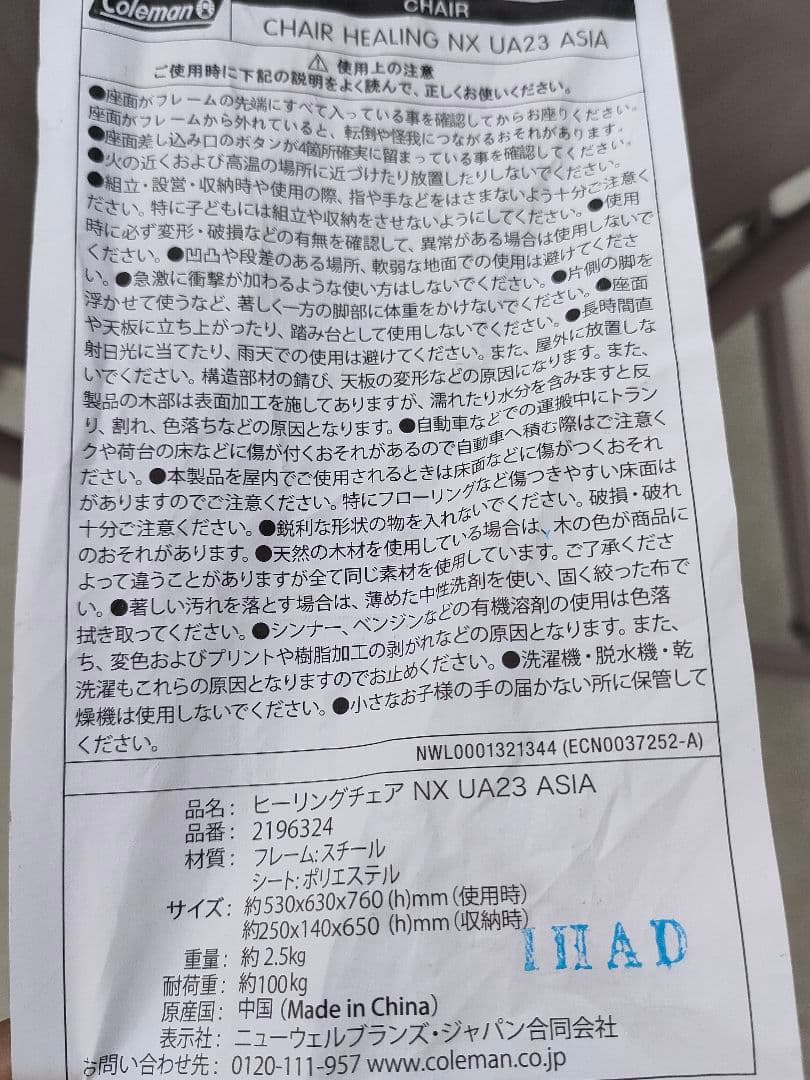 Coleman®
CHAIR
CHAIR HEALING NX UA23 ASIA
⚠ 使用上の注意
ご使用時に下記の説明をよく読んで、正しくお使いください。
●座面がフレームの先端にすべて入っている事を確認してからお座りください。
座面がフレームから外れていると、転倒や怪我につながるおそれがあります。
●座面差し込み口のボタンが4箇所確実に留まっている事を確認してください。
●火の近くおよび高温の場所に近づけたり放置したりしないでください。
●組立・設営・収納時や使用の際、指や手などをはさまないよう十分ご注意く
ださい。特に子どもには組立や収納をさせないようにしてください。●使用
時に必ず変形・破損などの有無を確認して、異常がある場合は使用しないで
ください。●凹凸や段差のある場所、軟弱な地面での使用は避けてくださ
い。●急激に衝撃が加わるような使い方はしないでください。●片側の脚を
浮かせて使うなど、著しく一方の脚部に体重をかけないでください。●座面
や天板に立ち上がったり、踏み台として使用しないでください。●長時間直
射日光に当てたり、雨天での使用は避けてください。また、屋外に放置しな
いでください。構造部材の錆び、天板の変形などの原因になります。また、
製品の木部は表面加工を施してありますが、濡れたり水分を含みますと反
り、割れ、色落ちなどの原因となります。●自動車などでの運搬中にトラン
クや荷台の床などに傷が付くおそれがあるので自動車へ積む際はご注意く
ださい。●本製品を屋内でご使用されるときは床面などに傷がつくおそれ
がありますのでご注意ください。特にフローリングなど傷つきやすい床面は
十分ご注意ください。●鋭利な形状の物を入れないでください。破損・破れ
のおそれがあります。●天然の木材を使用している場合は、木の色が商品に
よって違うことがありますが全て同じ素材を使用しています。ご了承くださ
い。●著しい汚れを落とす場合は、薄めた中性洗剤を使い、固く絞った布で
拭き取ってください。●シンナー、ベンジンなどの有機溶剤の使用は色落
ち、変色およびプリントや樹脂加工の剥がれなどの原因となります。また、
洗濯もこれらの原因となりますのでお止めください。●洗濯機・脱水機・乾
燥機は使用しないでください。●小さなお子様の手の届かない所に保管して
ください。
NWL0001321344 (ECN0037252-A)
品名: ヒーリングチェア NX UA23 ASIA
品番: 2196324
材質: フレーム:スチール
シート:ポリエステル
サイズ: 約530x630x760 (h)mm (使用時)
約250x140x650 (h)mm (収納時)
重量: 約 2.5kg
耐荷重: 約100kg
原産国: 中国 (Made in China)
表示社: ニューウェルブランズ・ジャパン合同会社
お問い合わせ先: 0120-111-957 www.coleman.co.jp